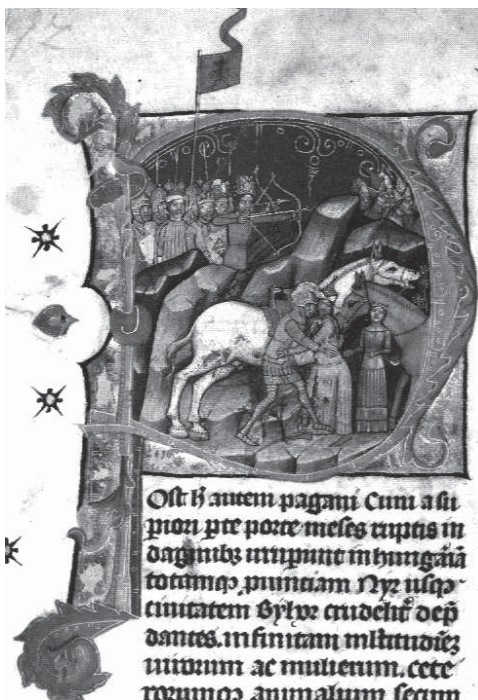 Ost h autem pagani Cuni a su
piori pte porte meses ruptis in
daginibz irrupunt in hungaiã
totamqp puinciam Nyr usqp
ciuitatem Byhor crudelit dep
dantes. infinitam mltitudiez
uirorum ac mulierum. cete
rorumqp animalium secum